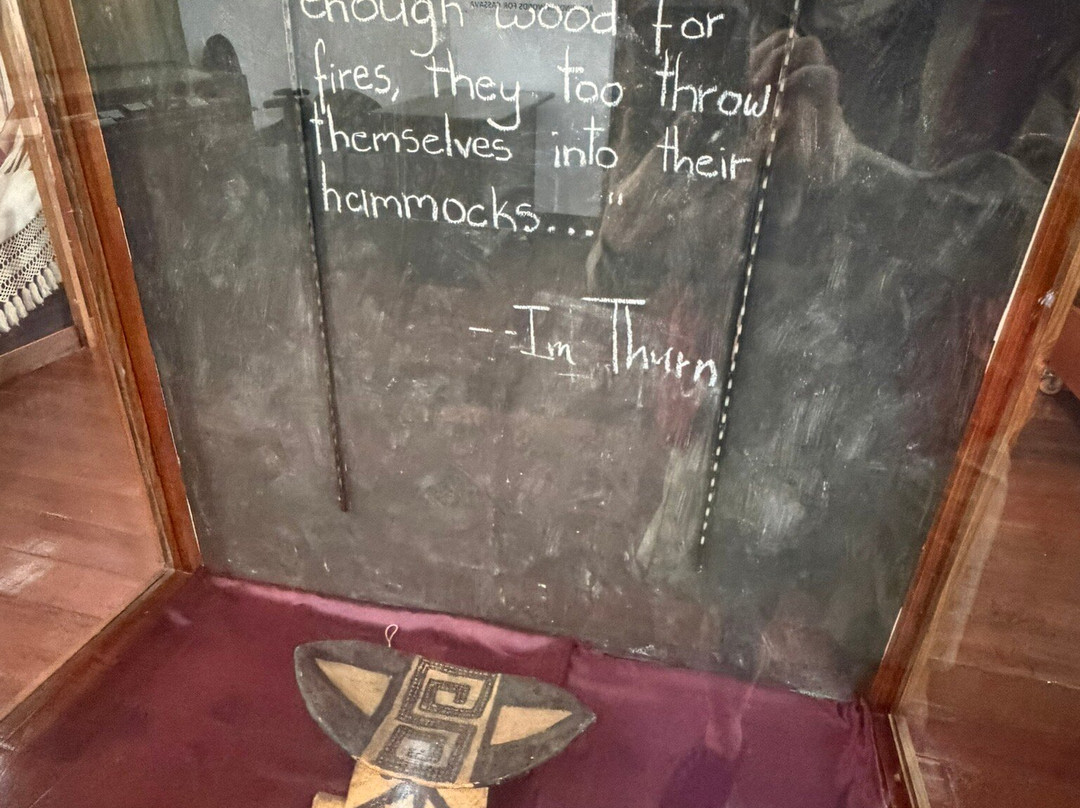 enough wood for
fires, they too throw
themselves into their
hammocks..."
--Im Thurn